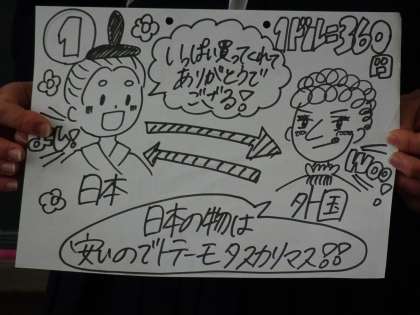 1
いっぱい買ってくれて
ありがとうで
ござる!
1ドル=360
円
Woo!
日本
外国
日本の物は
安いのでトテーモタスカリマス!!